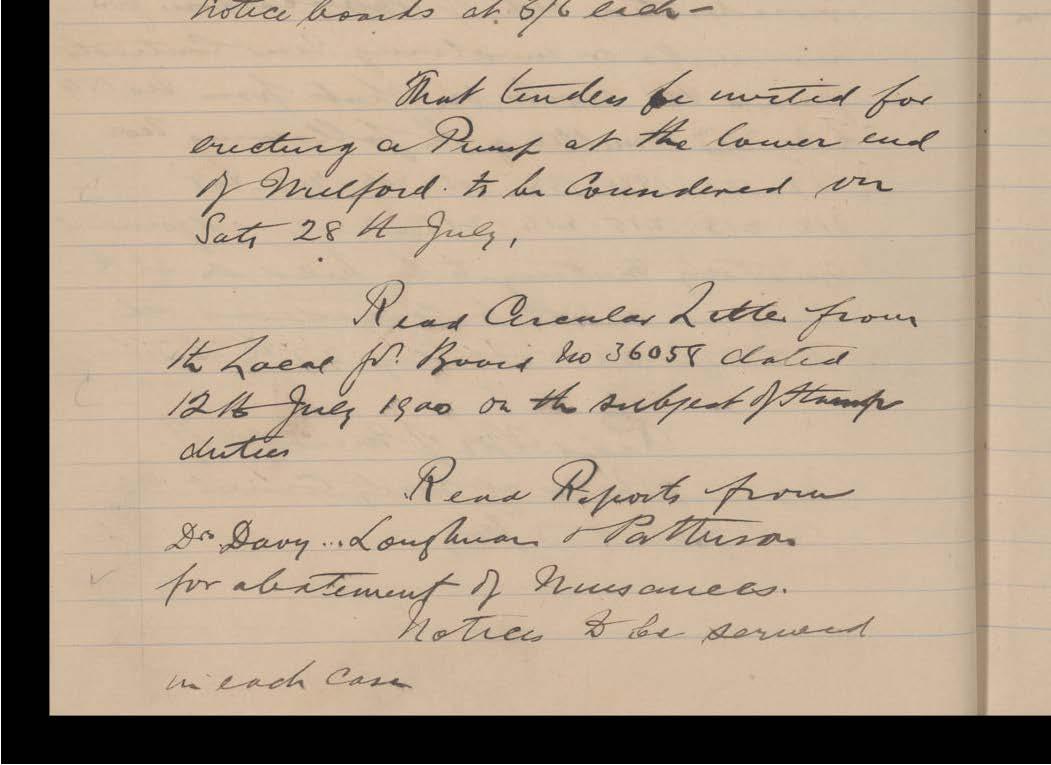 Notice boards at 6/6 each -
That tenders be invited for
erecting a Pump at the lower end
of Milford. to be Considered on
Saty 28th July,
Read Circular Letter from
the Local Gt. Board No 36058 dated
12th July 1900 on the subject of Stamp
duties
Read Reports from
Drs Davy... Loughnan & Patterson
for abatement of Nuisances.
Notices to be served
in each case